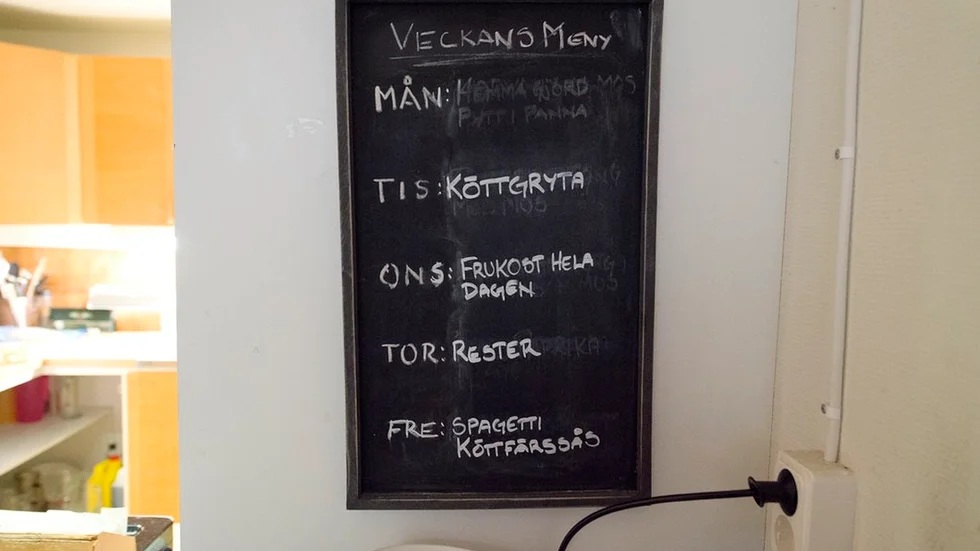 VECKANS MENY
MÅN: HEMMAGJORD
PYTTI PANNA
TIS: KÖTTGRYTA
ONS: FRUKOST HELA
DAGEN
TOR: RESTER
FRE: SPAGETTI
KÖTTFÄRSSÅS